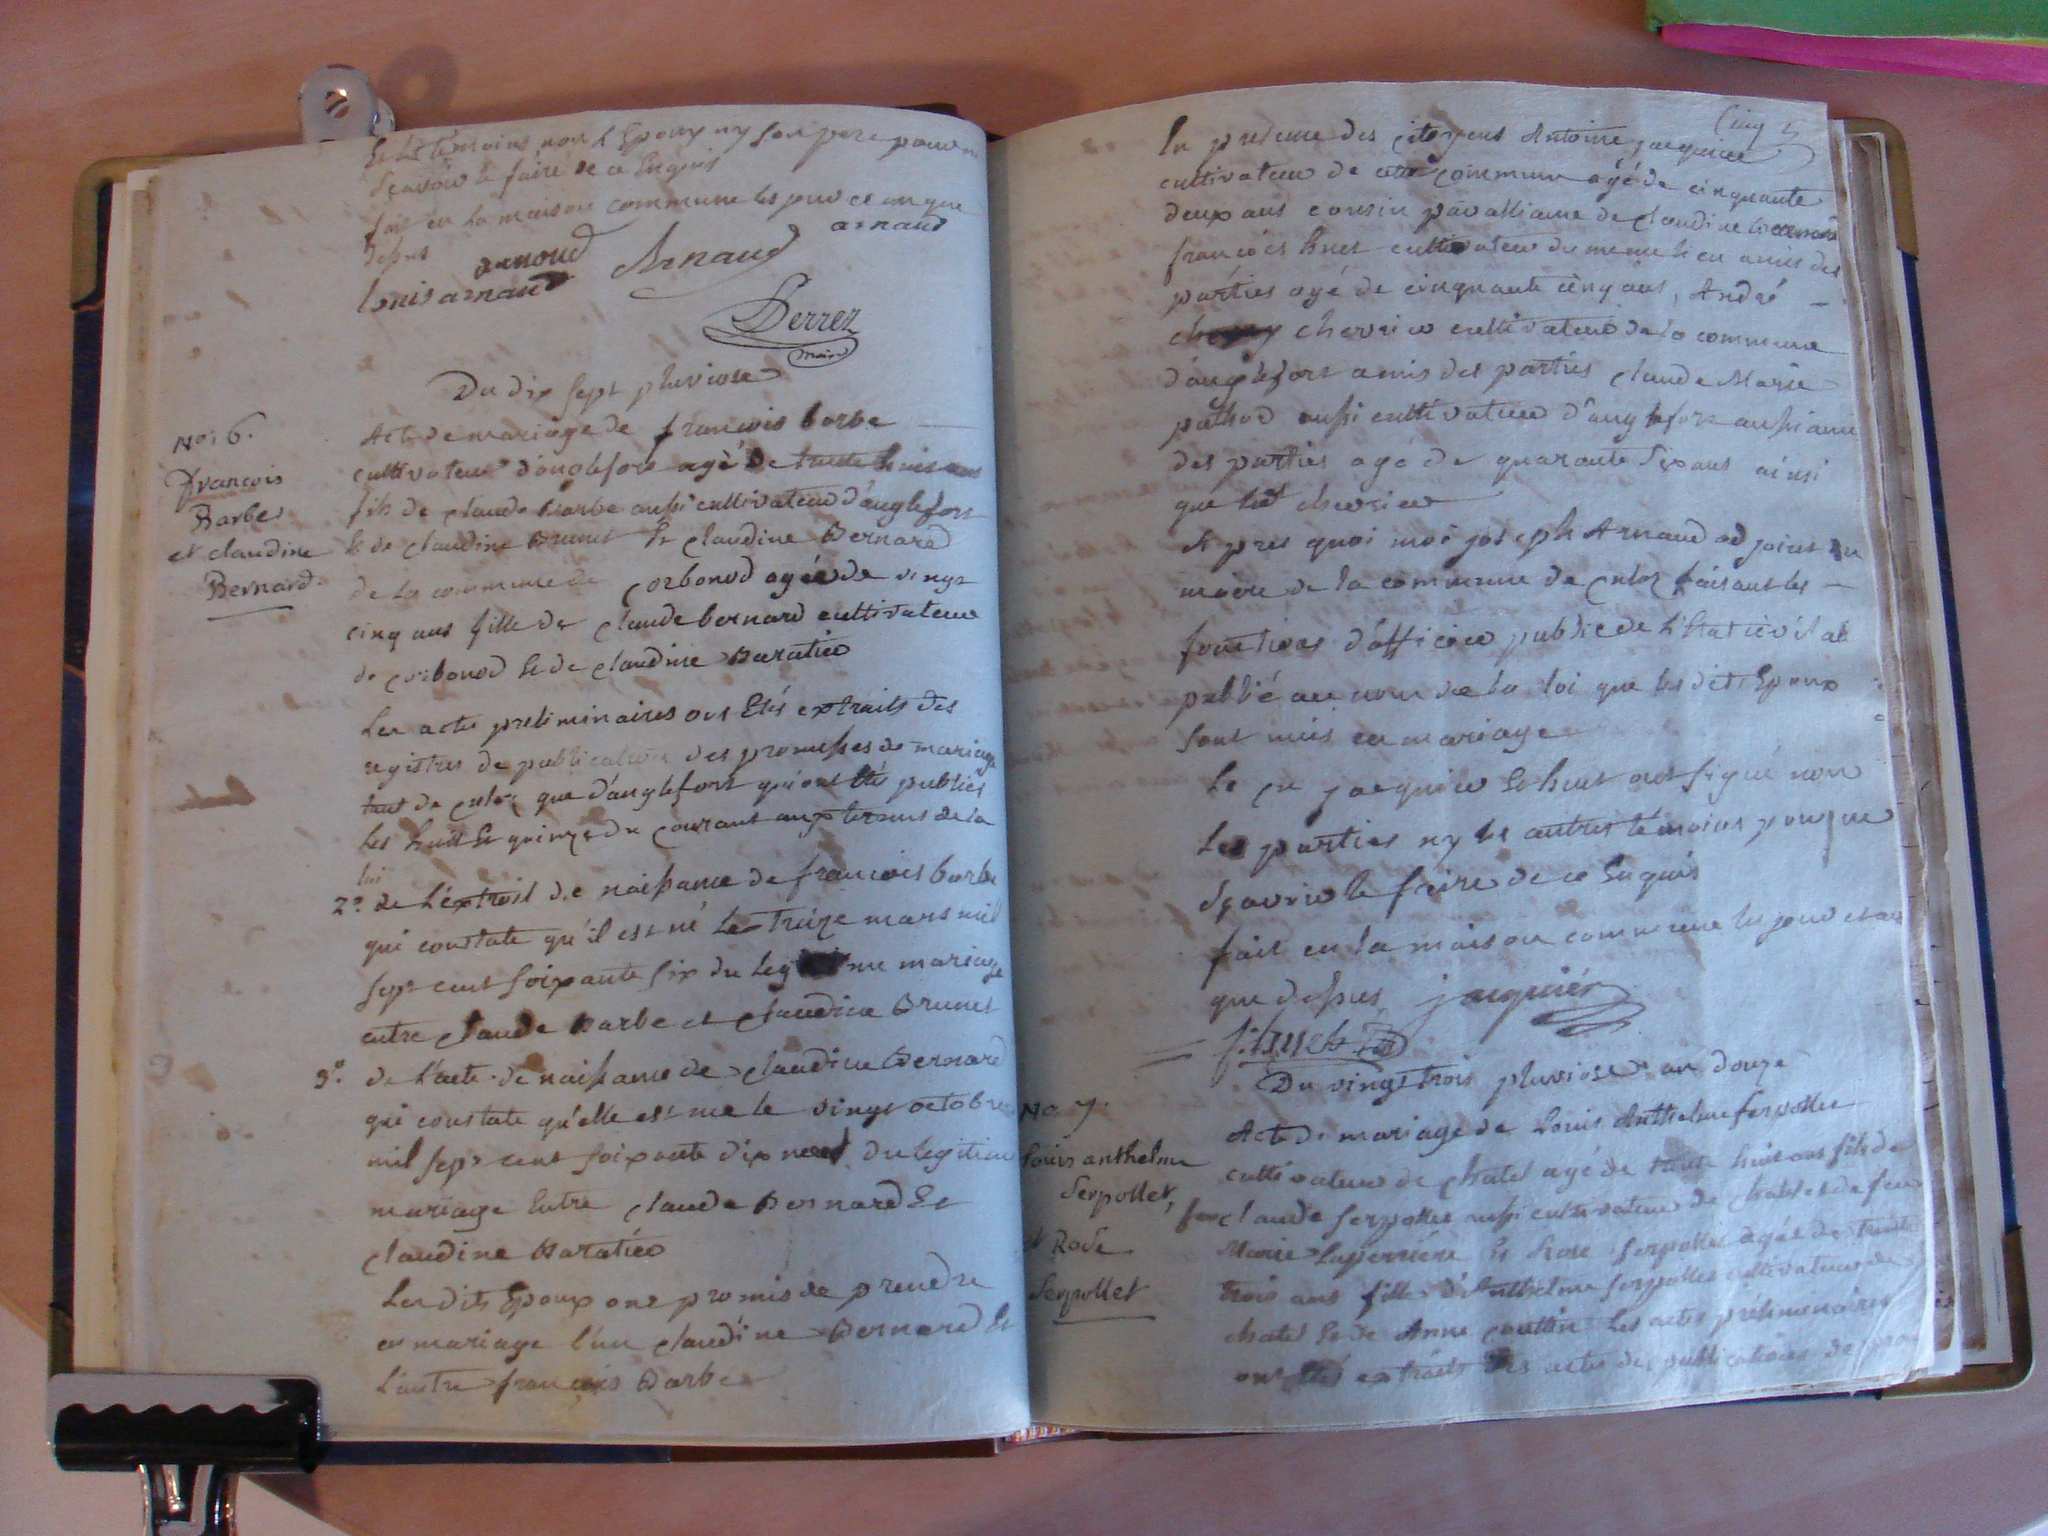 Et les témoins non l'Epoux ny son pere pour ne
Sçavoir le faire de ce Enquis
fait en la maison commune les jour et an que
dessus arnaud
arnoud Arnaud
louis arnaud
Serrez
maire
Du dix sept pluviose
No. 6.
François
Barbe
et claudine
Bernard
Acte de mariage de francois barbe
cultivateur d'anglefort agé de trente huit ans
fils de claude Barbe aussi cultivateur d'anglefort
Et de claudine Brunet Et claudine Bernard
de la commune de Corbonod agée de vingt
cinq ans fille de claude bernard cultivateur
de corbonod Et de claudine Baratier
Les actes preliminaires ont Etés extraits des
registres de publication des promesses de mariage
tant de culoz que d'anglefort qui ont Eté publiés
les huit Et quinze du courant aux termes de la
loi
2º. de L'extrait de naissance de francois barbe
qui constate qu'il est né le Treize mars mil
sept cent soixante six du leg me mariage
entre claude Barbe et claudine Brunet
3º. de L'acte de naissance de claudine Bernard
qui constate qu'elle est nee le vingt octobre
mil sept cent soixante dix neuf du legitime
mariage Entre claude Bernard Et
claudine Baratier
Les dits Epoux ont promis de prendre
en mariage l'un claudine Bernard Et
L'autre françois Barbe
Cinq 5
En presence des citoyens Antoine jacquier
cultivateur de cette commune agé de cinquante
deux ans cousin par alliance de claudine Bernard
francois huet cultivateur du meme lieu amis des
parties agé de cinquante cinq ans, André
chevrier cultivateur de la commune
d'anglefort amis des parties claude Marie
pathod aussi cultivateur d'anglefort aussi ami
des parties agé de quarante six ans ainsi
que led chevrier
Apres quoi moi joseph Arnaud adjoint du
maire de la commune de culoz faisant les
fonctions d'officier public de L'Etat civil ai
publié au nom de la loi que les dits Epoux
sont unis en mariage
Le cn jacquier Et huet ont signé non
Les parties ny les autres témoins pour ne
sçavoir le faire de ce Enquis
fait en la maison commune les jour et an
que dessus jacquier
f. huet
Du vingt trois pluviose an douze
No. 7.
Louis anthelme
Serpollet,
et Rose
Serpollet
Acte de mariage de Louis Anthelme serpollet
cultivateur de chatel agé de trente huit ans fils de
feu claude serpollet aussi cultivateur de chatel et de feue
Marie Laperriere Et Rose serpollet agée de trente
trois ans fille d'Anthelme serpollet cultivateur de
chatel Et de Anne Les actes préliminaires
ont Etés extraits des actes de publications de